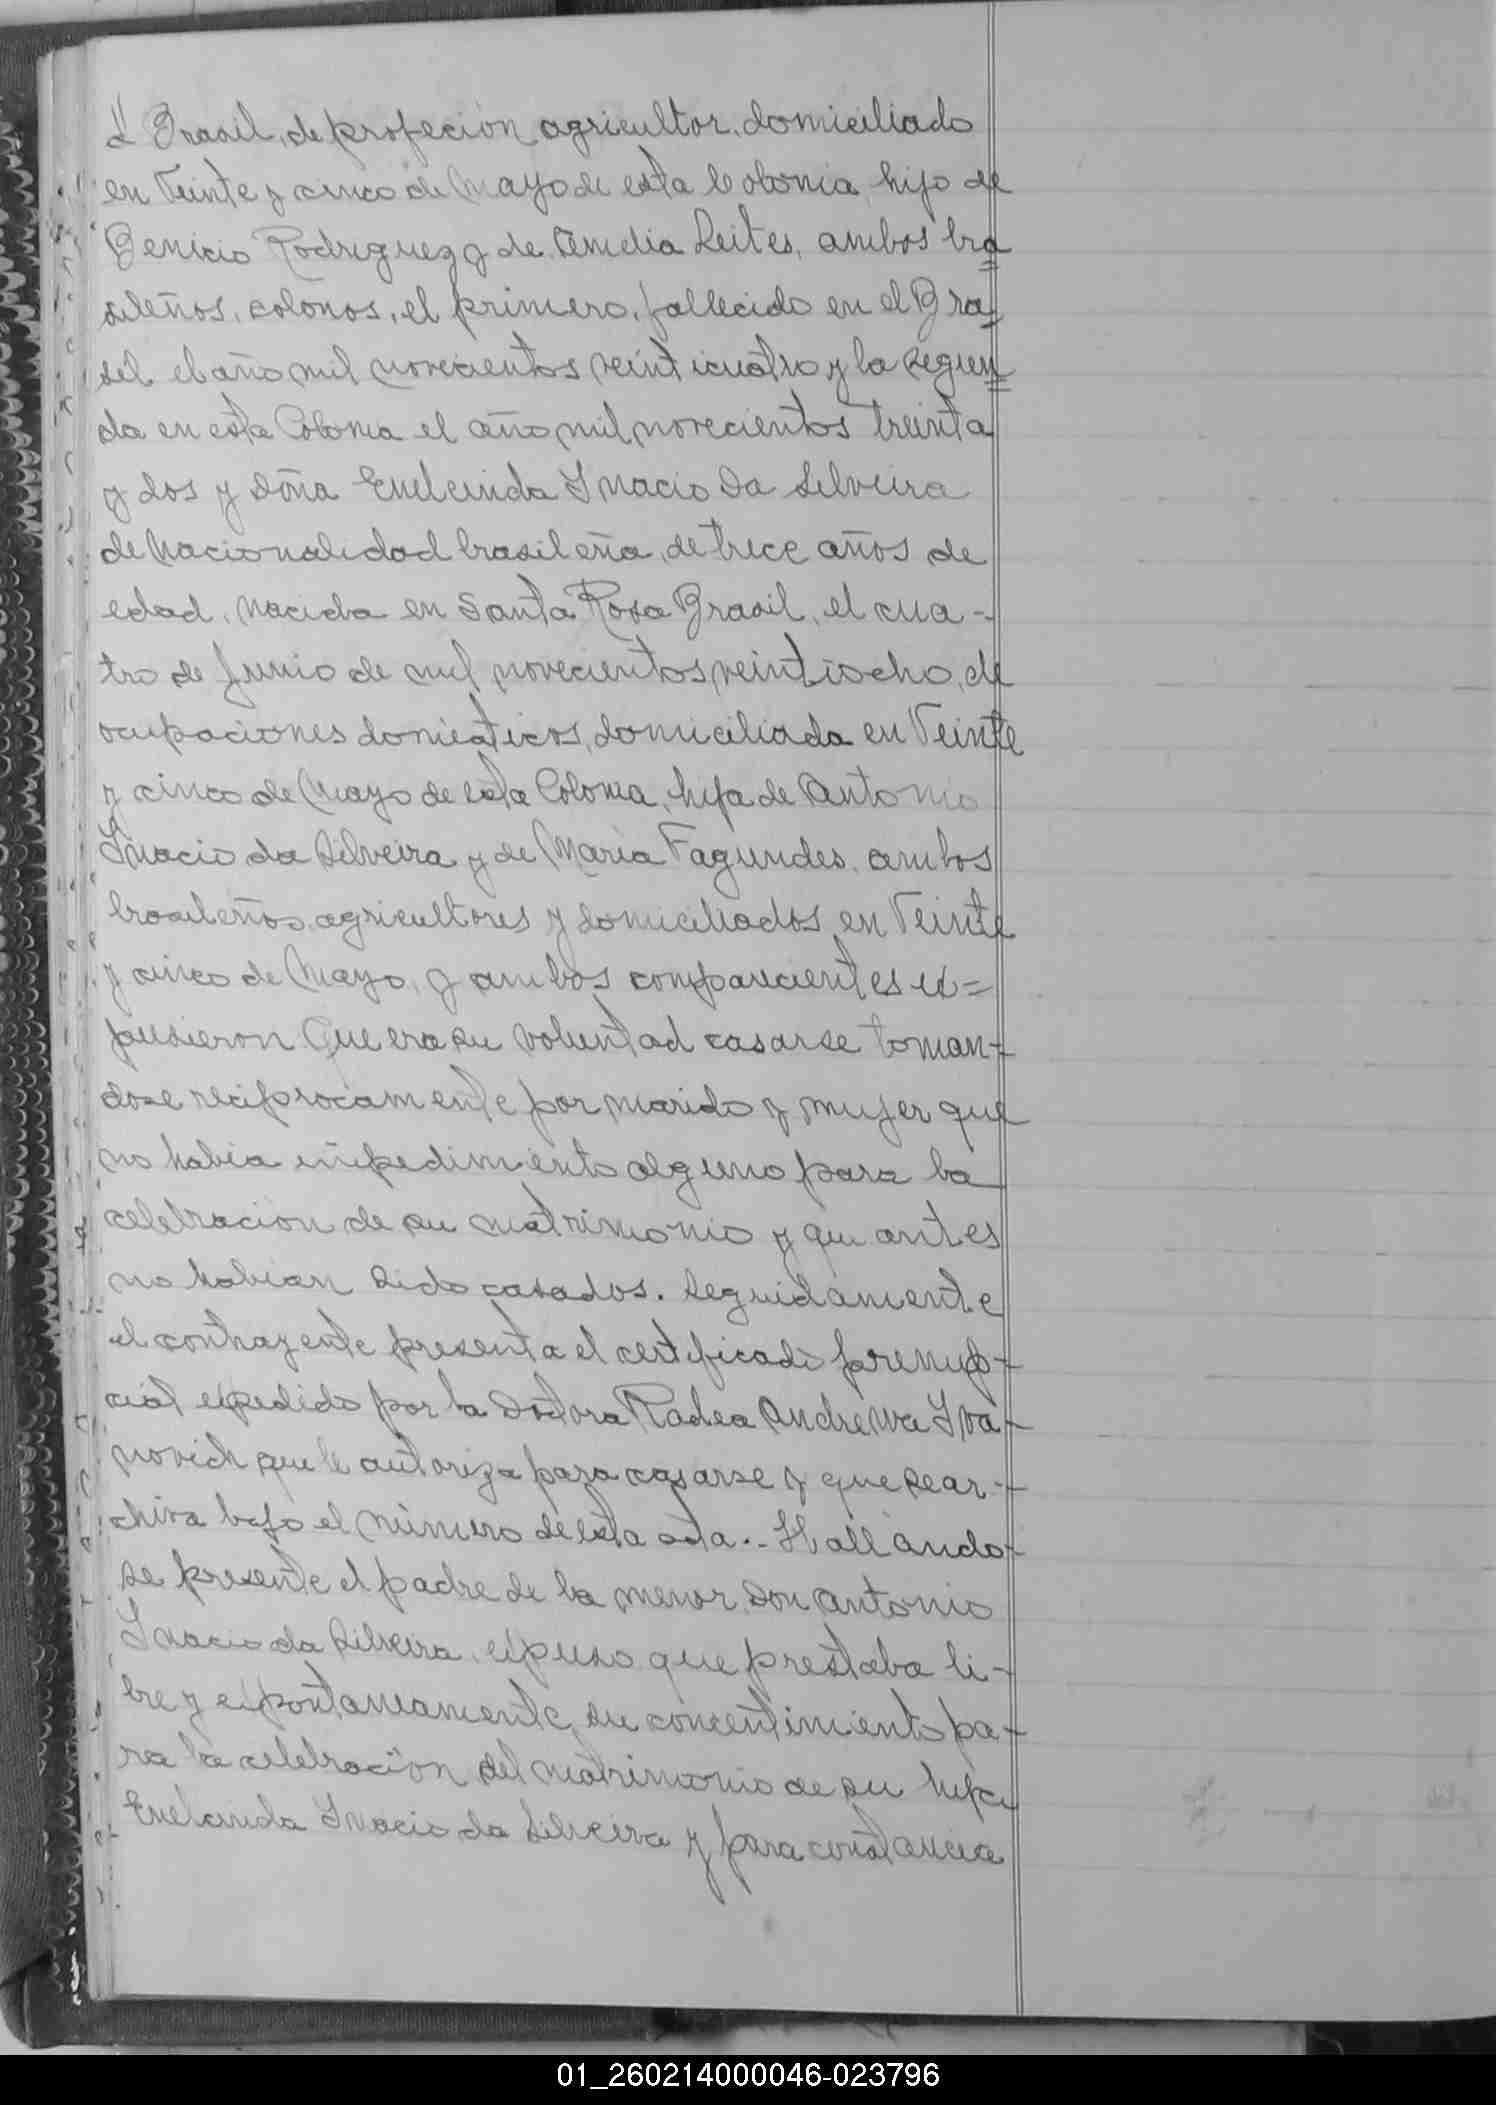 el Brasil, de profeción agricultor, domiciliado
en Veinte y cinco de Mayo de esta Colonia, hijo de
Benicio Rodriguez y de Amelia Leites, ambos bra
sileños, colonos, el primero, fallecido en el Bra
sil el año mil novecientos veinticuatro y la segun
da en esta Colonia el año mil novecientos treinta
y dos y Doña Enelcinda Ynacio Da Silveira
de nacionalidad brasileña, de trece años de
edad, nacida en Santa Rosa Brasil, el cua-
tro de Junio de mil novecientos veintiocho, de
ocupaciones domésticos, domiciliada en Veinte
y cinco de Mayo de esta Colonia, hija de Antonio
Ynacio da Silveira y de María Fagundes, ambos
brasileños, agricultores y domiciliados en Veinte
y cinco de Mayo, y ambos comparecientes ex=
pusieron Que era su voluntad casarse toman-
dose reciprocamente por marido y mujer que
no había impedimento alguno para la
celebracion de su matrimonio y que antes
no habian sido casados. Seguidamente
el contrayente presenta el certificado prenup-
cial expedido por la Doctora Radea Andrewa Yva-
novich que le autoriza para casarse y que se ar-
chiva bajo el número de esta acta.- Hallando-
se presente el padre de la menor Don Antonio
Ynacio da Silveira, expuso que prestaba li-
bre y expontaneamente, su concentimiento pa-
ra la celebración del matrimonio de su hija
Enelcinda Ynacio da Silveira y para constancia
01_260214000046-023796